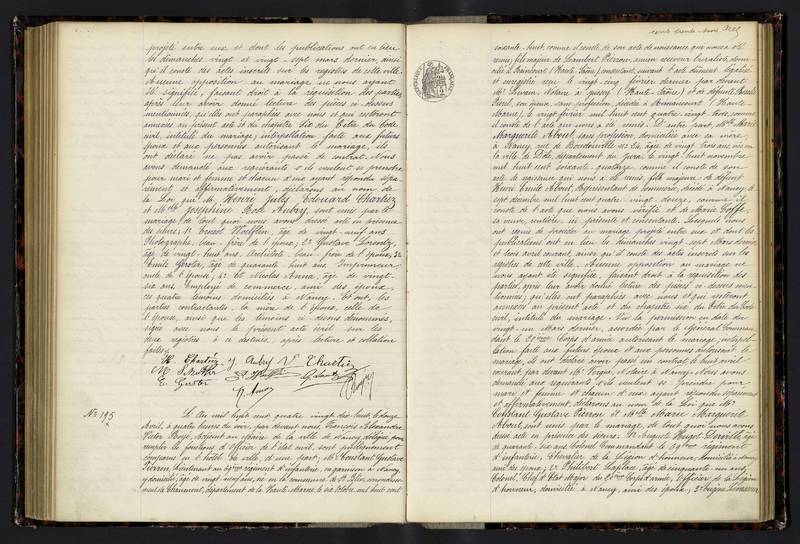 projeté entre eux et dont les publications ont eu lieu
les dimanches vingt et vingt-sept mars dernier, ainsi
qu'il conste des actes inscrits sur les registres de cette ville.
Aucune opposition au mariage ne nous ayant
été signifiée, faisant droit à la réquisition des parties,
après leur avoir donné lecture des pièces ci-dessus
mentionnées, qu'elles ont paraphées avec nous et qui resteront
annexées au présent acte et du chapitre six du titre du Code
civil, intitulé du mariage; interpellation faite aux futurs
époux et aux personnes autorisant le mariage, ils
ont déclaré ne pas avoir passé de contrat. Nous
avons demandé aux requérants s'ils veulent se prendre
pour mari et femme et chacun d'eux ayant répondu sépa-
rément et affirmativement, déclarons au nom de
la Loi que M. Henri Jules Edouard
et Melle Joséphine Rose Aubry, sont unis par le
mariage; de tout quoi nous avons dressé acte en présence
des sieurs; 1° Ernest âgé de vingt-neuf ans
Photographe, beau-frère de l'époux; 2° Gustave
âgé de vingt-huit ans, Architecte, beau-frère de l'époux; 3°
Emile âgé de quarante huit ans
oncle de l'épouse, 4° et Nicolas Anna, âgé de vingt-
six ans, Employé de commerce, ami des époux,
ces quatre témoins domiciliés à Nancy. Et ont, les
parties contractantes, la mère de l'époux, celle de
l'épouse, ainsi que les témoins ci-dessus dénommés,
signé avec nous le présent acte écrit sur les
deux registres à ce destinés, après lecture et collation
faites.
J. Aubry
No 195
L'An mil huit cent quatre vingt-dix-huit, le douze
Avril, à quatre heures du soir, par devant nous, François Alexandre
Victor Adjoint au Maire de la ville de Nancy, délégué pour
remplir les fonctions d'officier de l'état civil, sont publiquement
comparus en l'hôtel de ville, d'une part, M. Constant Gustave
Pierron, Lieutenant au régiment d'infanterie, en garnison à Nancy,
y domicilié, âgé de vingt-neuf ans, né en la commune de St Blin, arrondisse-
ment de Chaumont, département de la Haute-Marne, le six octobre mil huit cent
soixante-huit, comme il conste de son acte de naissance que nous a été
remis, fils majeur de Pierron, ancien receveur buraliste, domi-
cilié à (Haute Saône), consentant, suivant l'acte dûment légalisé
et enregistré reçu le vingt-cinq février dernier par devant
Me Notaire à Jussey (Haute-Saône) et de défunte
son épouse, sans profession, décédée à (Haute-
Marne), le vingt février mil huit cent quatre-vingt-trois, comme
il conste de l'acte qui nous a été remis. Et d'autre part, Melle Marie
Marguerite About, sans profession, domiciliée avec sa mère
à Nancy, rue de Boudonville no 24, âgée de vingt trois ans, née en
la ville de Dole, département du Jura, le vingt-huit novembre
mil huit cent soixante-quatorze, comme il conste de son
acte de naissance qui nous a été remis, fille majeure de défunt
Henri Emile About, Représentant de commerce, décédé à Nancy, le
sept décembre mil huit cent quatre-vingt-douze, comme il
conste de l'acte que nous avons vérifié et de Marie
sa veuve, rentière, ici présente et consentante. Lesquels nous
ont requis de procéder au mariage projeté entre eux et dont les
publications ont eu lieu les dimanches vingt-sept Mars dernier
et trois avril courant, ainsi qu'il conste des actes inscrits sur les
registres de cette ville. Aucune opposition au mariage ne
nous ayant été signifiée, faisant droit à la réquisition des
parties, après leur avoir donné lecture des pièces ci-dessus men-
tionnées; qu'elles ont paraphées avec nous et qui resteront
annexées au présent acte et du chapitre six du titre du Code
civil, intitulé du mariage. Vu la permission en date du
vingt-un Mars dernier, accordée par le Général Comman-
dant le 20ème Corps d'armée autorisant le mariage; interpel-
lation faite aux futurs époux et aux personnes autorisant le
mariage, ils ont déclaré avoir passé un contrat le huit avril
courant, par devant Me Notaire à Nancy. Nous avons
demandé aux requérants s'ils veulent se prendre pour
mari et femme et chacun d'eux ayant répondu séparément
et affirmativement, déclarons au nom de la Loi que M.
Constant Gustave Pierron et Melle Marie Marguerite
About, sont unis par le mariage, de tout quoi nous avons
dressé acte en présence des sieurs: 1° Auguste âgé
de quarante-six ans, Colonel Commandant le régiment
d'infanterie, Chevalier de la Légion d'honneur, domicilié à Nancy,
ami des époux; 2° Philibert Laplace, âgé de cinquante-un ans,
Colonel, Chef d'Etat Major du 20ème Corps d'armée, Officier de la Légion
d'honneur, domicilié à Nancy, ami des époux; 3° Eugène